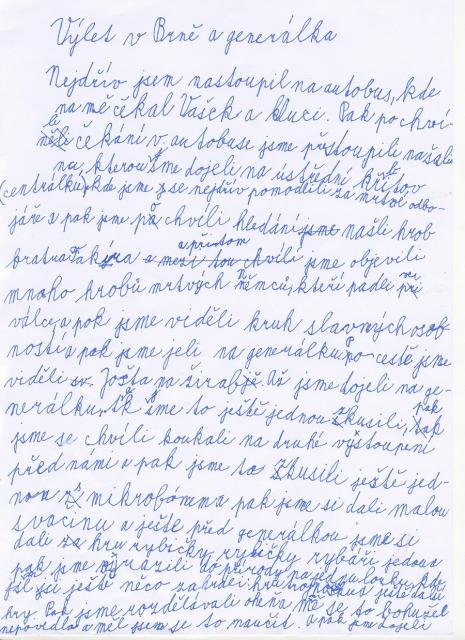 Výlet v Brně a generálka
Nejdřív jsem nastoupil na autobus, kde
na mě čekal Vašek a kluci. Pak po chvi-
li čekání v autobuse jsme přestoupili na šali-
nu, kterou jsme dojeli na ústřední hřbitov
(centrálku), kde jsme se nejdřív pomodlili za mrtvé odbo-
jáře a pak jsme po chvíli hledání našli hrob
bratra a přitom chvíli jsme objevili
mnoho hrobů mrtvých Němců, kteří padli ve
válce, a pak jsme viděli kruh slavných osob-
ností a pak jsme jeli na generálku, po cestě jsme
viděli sv. Jošta na žirafě. Až jsme dojeli na ge-
nerálku, tak jsme to ještě jednou zkusili, pak
jsme se chvíli koukali na druhé vystoupení
před námi a pak jsme to zkusili ještě jed-
nou mikrofónem a pak jsme si dali malou
svačinu a ještě před generálkou jsme si
dali za hru rybičky, rybičky rybáři jedou a
pak jsme vyrazili do přírody na kde
jsme si ještě něco zahráli: ještě další
hry. Pak jsme rozdělávali oheň a mě se to bohužel
nepovedlo a měl jsem se to naučit. A pak jsme dojeli